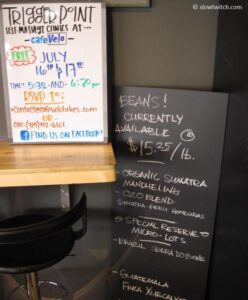 © slowtwitch.com
TRIGGER POINT
SELF MASSAGE CLINICS AT...
cafeVelo
FREE
JULY
16TH & 17TH
TIME: 5:30 - AND - 6:30 PM
RSVP TO:
FIND US ON FACEBOOK!
BEANS!
CURRENTLY
AVAILABLE @
$15.25/lb.
- ORGANIC SUMATRA
MANDHELING
- OZO BLEND
SUMATRA PERU HONDURAS
SPECIAL RESERVE
MICRO-LOTS
- BRAZIL SERRA DO BONE
- GUATEMALA
FINCA